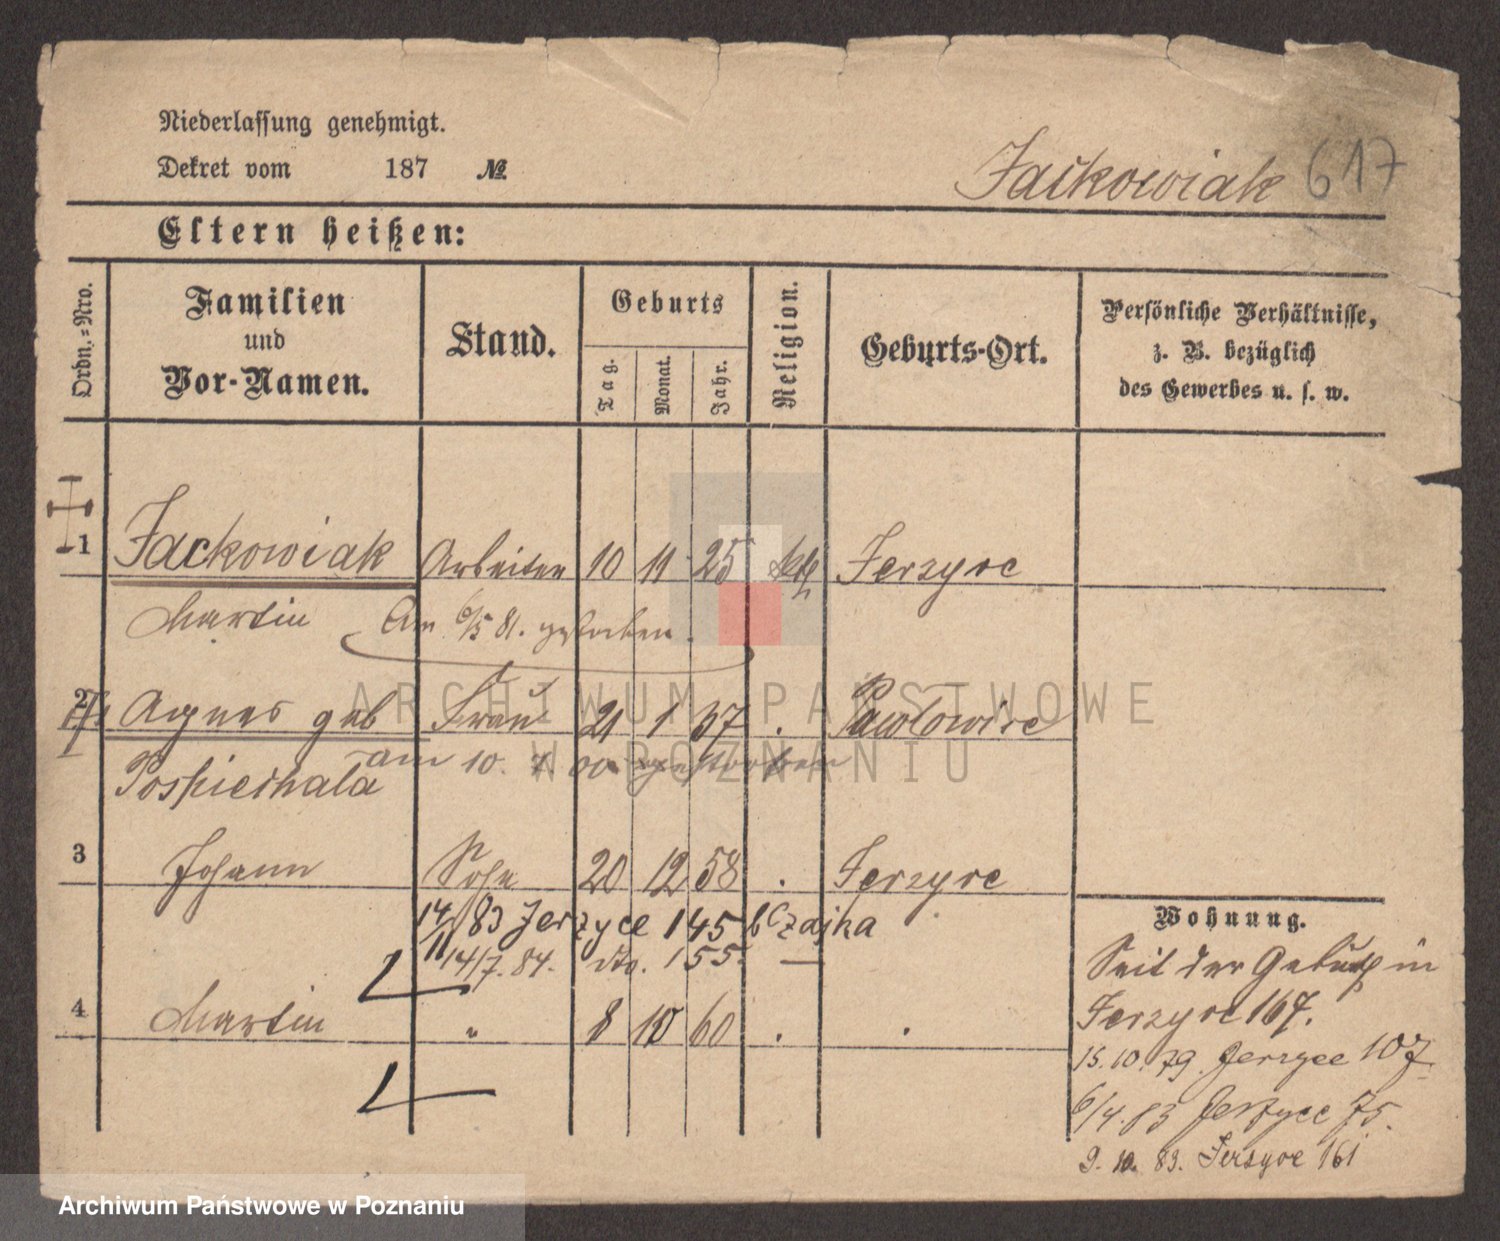 Niederlassung genehmigt.
Dekret vom 187 №
Jackowiak 617
Eltern heißen:
Ordn.-Nro.
Familien
und
Vor-Namen.
Stand.
Geburts
Tag.
Monat.
Jahr.
Religion.
Geburts-Ort.
Persönliche Verhältnisse,
z. B. bezüglich
des Gewerbes u. s. w.
1 Jackowiak Arbeiter 10 11 25 kath Jerzyce
Martin Am 6/5 81. gestorben.
2 Agnes geb Frau 21 1 37 . Pawlowice
am 10. 7. 00 gestorben
Pospiechala
3 Johann Sohn 20 12 58 . Jerzyce
14/11 83 Jerzyce 145 b Czajka
14/7. 84. dto. 155. —
4 Martin " 8 10 60 . .
Wohnung.
Seit der Geburt in
Jerzyce 167.
15.10.79. Jerzyce 107
6/4.83 Jerzyce 75.
9. 10. 83. Jerzyce 161
ARCHIWUM PAŃSTWOWE
W POZNANIU
Archiwum Państwowe w Poznaniu